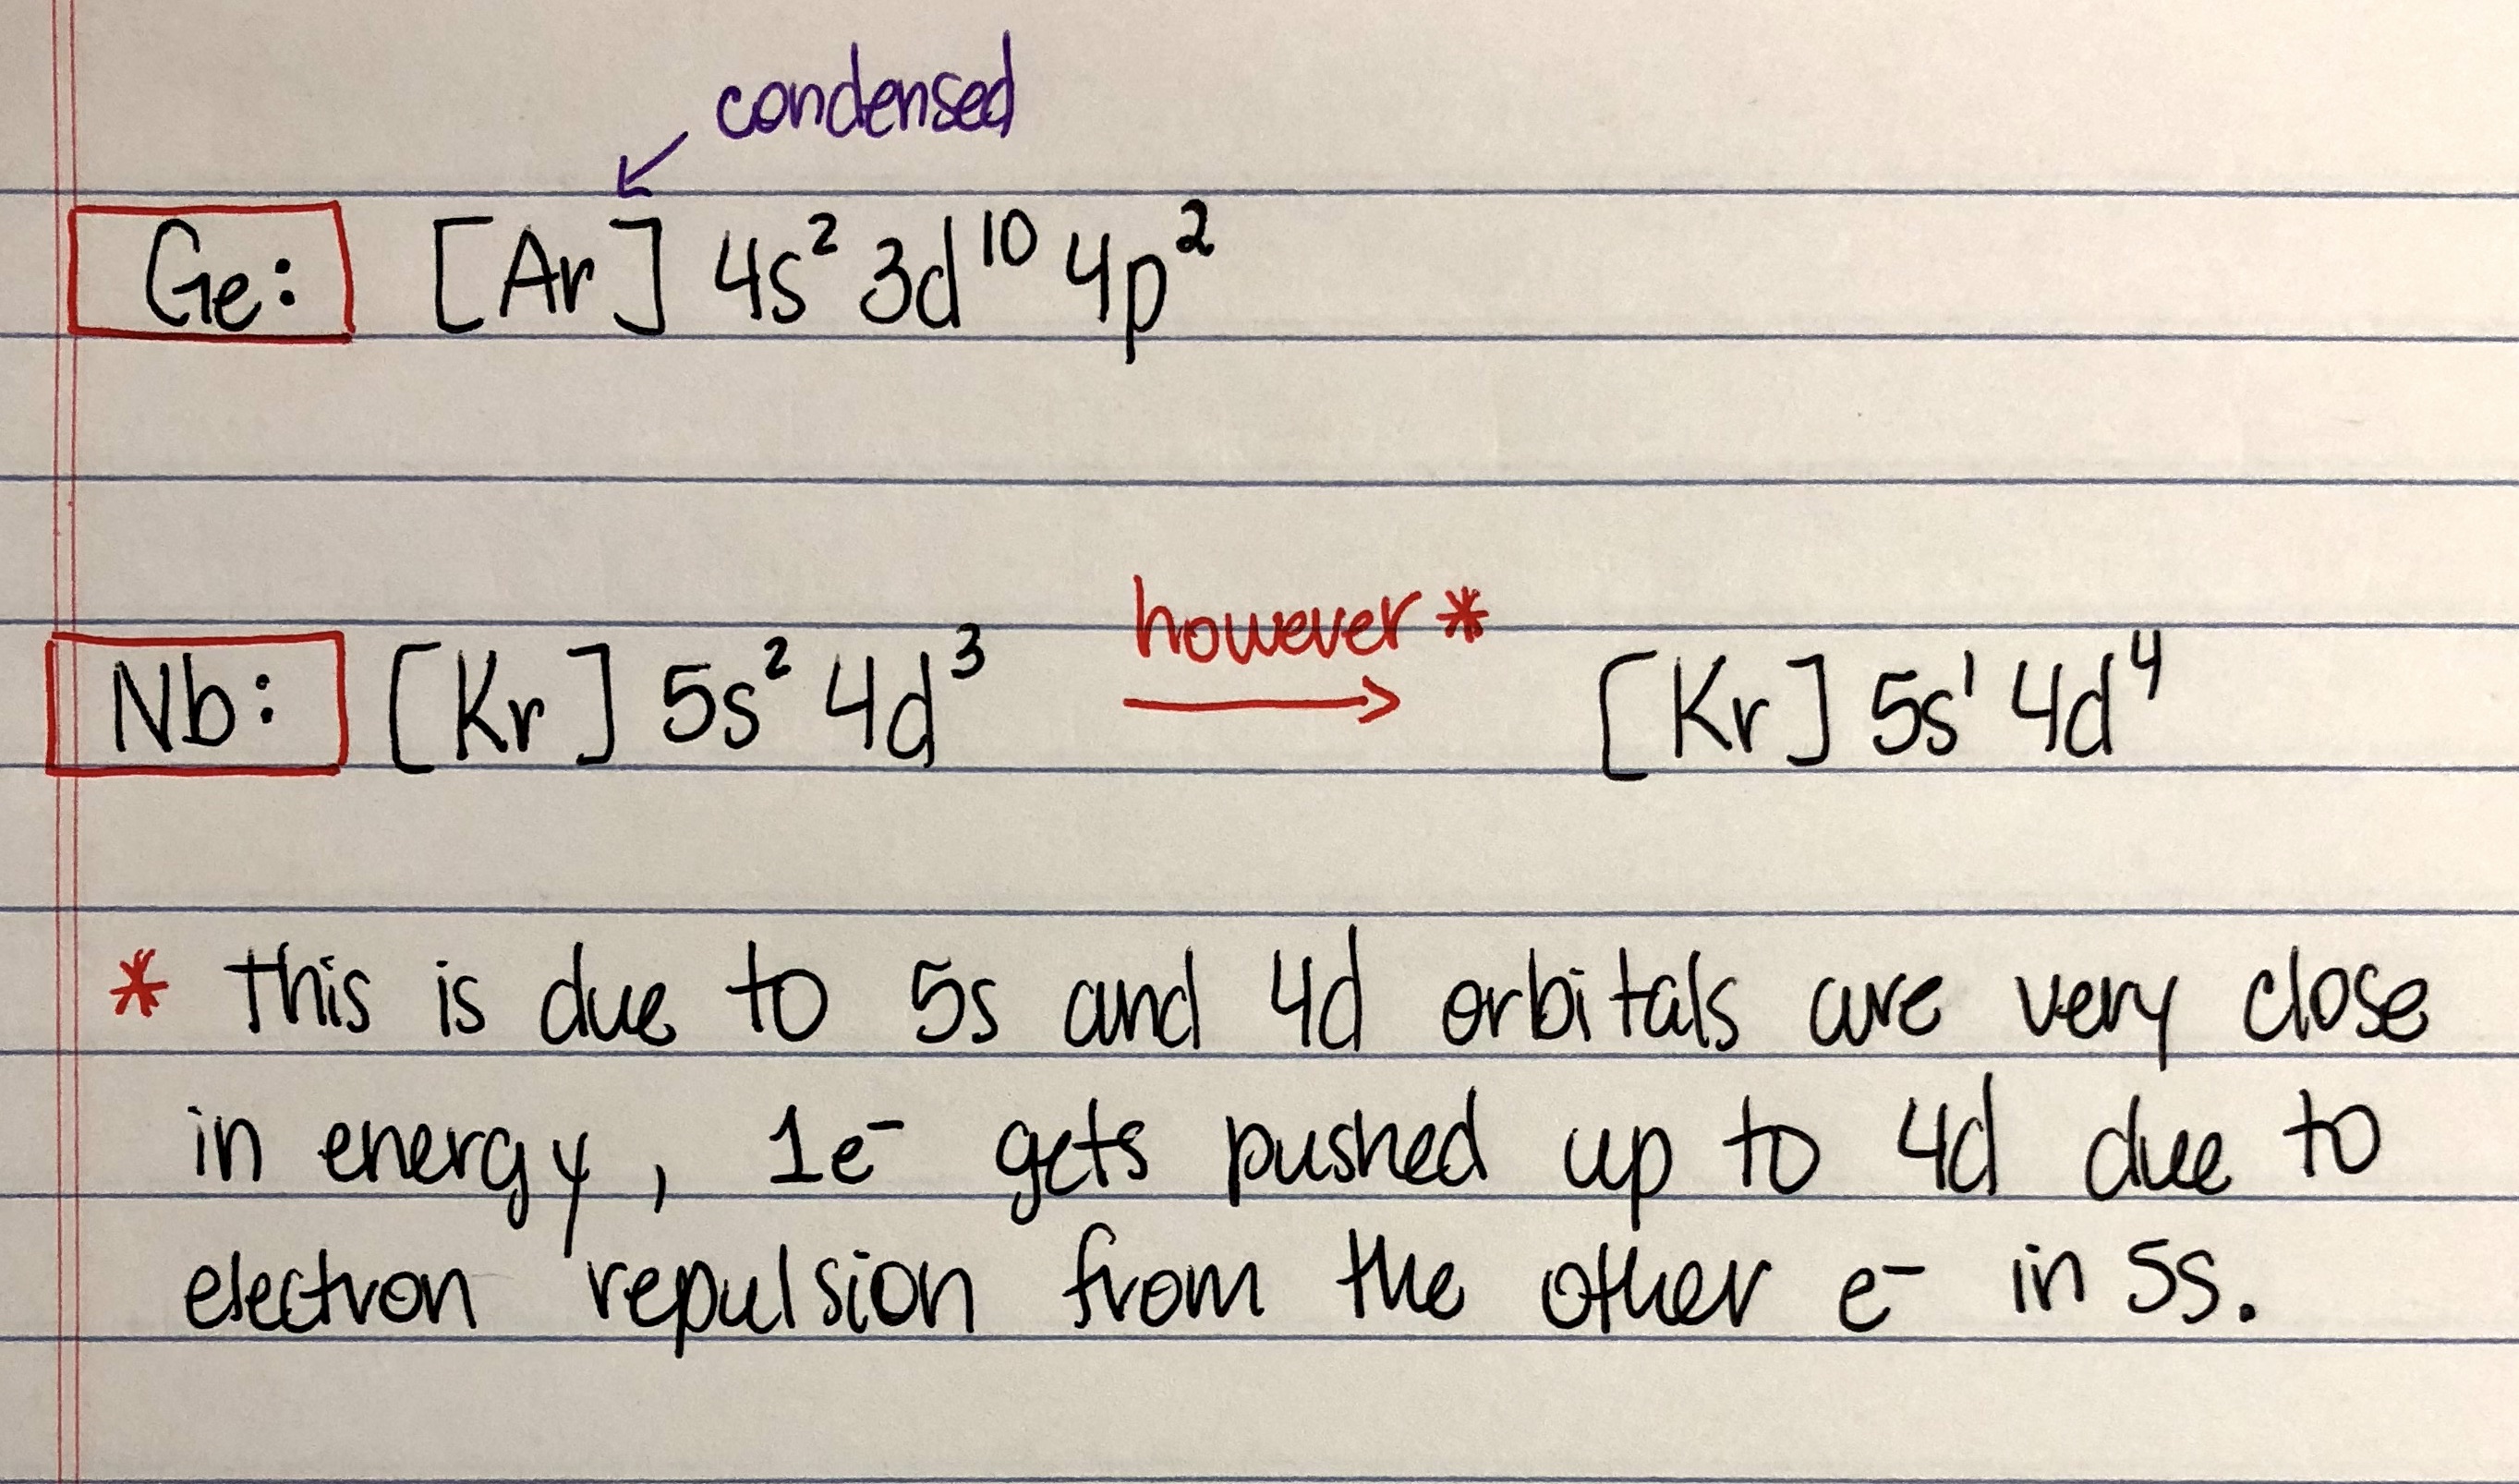 condensed
Ge: [Ar] 4s² 3d¹⁰ 4p²
however *
Nb: [Kr] 5s² 4d³ → [Kr] 5s¹ 4d⁴
* this is due to 5s and 4d orbitals are very close
in energy, 1e⁻ gets pushed up to 4d due to
electron repulsion from the other e⁻ in 5s.